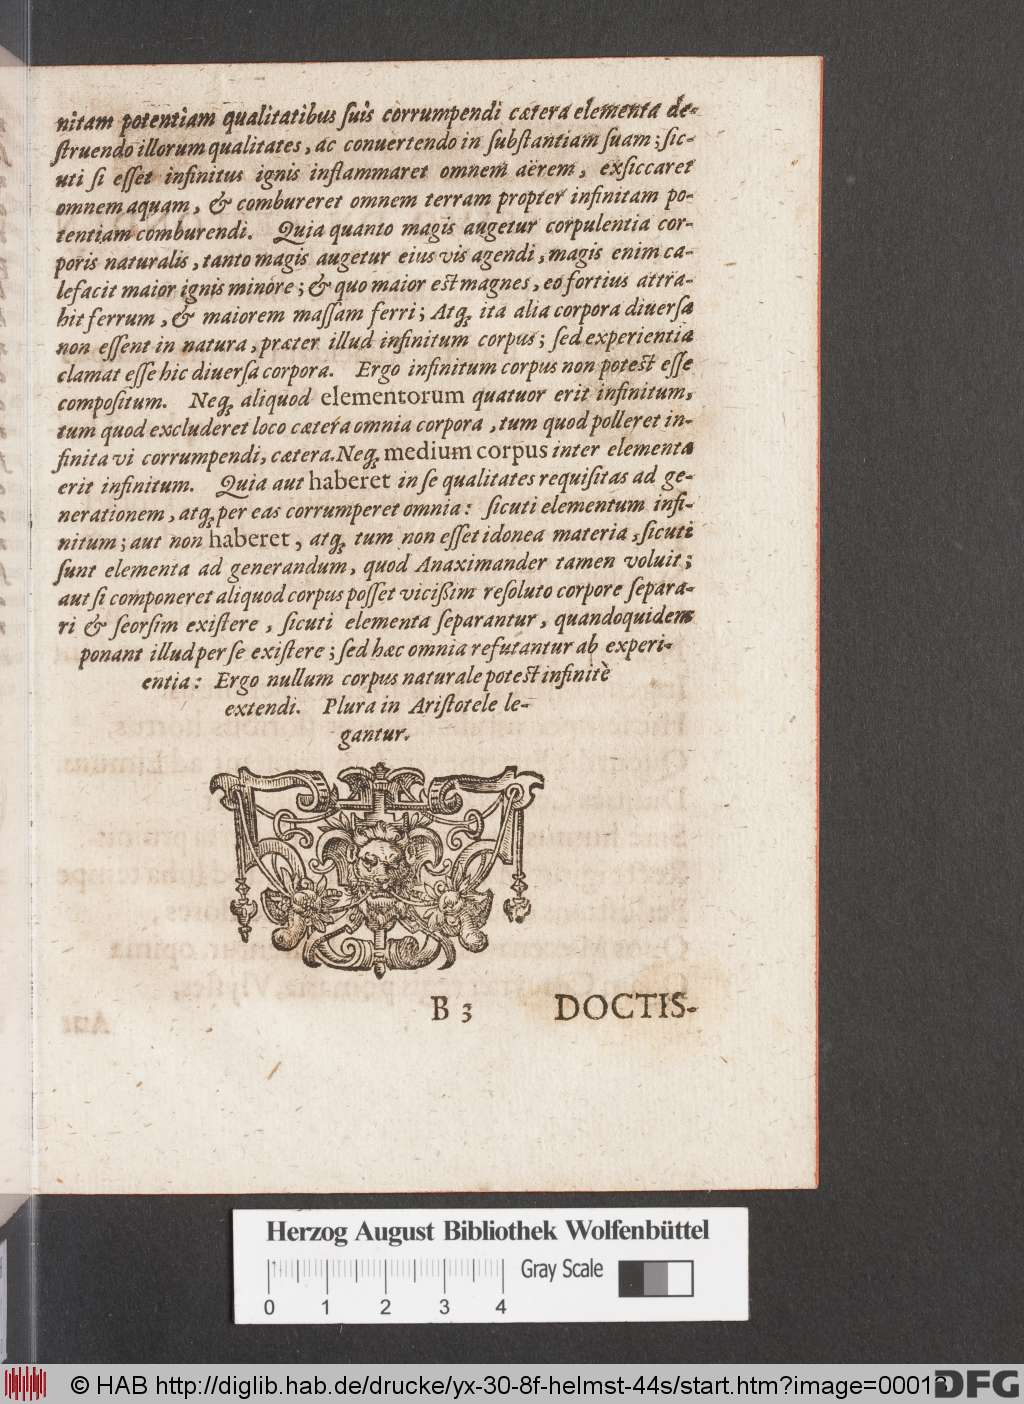 nitam potentiam qualitatibus suis corrumpendi cætera elementa de-
struendo illorum qualitates, ac conuertendo in substantiam suam; sic-
uti si esset infinitus ignis inflammaret omnem aërem, exsiccaret
omnem aquam, & combureret omnem terram propter infinitam po-
tentiam comburendi. Quia quanto magis augetur corpulentia cor-
poris naturalis, tanto magis augetur eius vis agendi, magis enim ca-
lefacit maior ignis minore; & quo maior est magnes, eo fortius attra-
hit ferrum, & maiorem massam ferri; Atq; ita alia corpora diuersa
non essent in natura, præter illud infinitum corpus; sed experientia
clamat esse hic diuersa corpora. Ergo infinitum corpus non potest esse
compositum. Neq; aliquod elementorum quatuor erit infinitum,
tum quod excluderet loco cætera omnia corpora, tum quod polleret in-
finita vi corrumpendi, cætera. Neq; medium corpus inter elementa
erit infinitum. Quia aut haberet in se qualitates requisitas ad ge-
nerationem, atq; per eas corrumperet omnia: sicuti elementum infi-
nitum; aut non haberet, atq; tum non esset idonea materia, sicuti
sunt elementa ad generandum, quod Anaximander tamen voluit;
aut si componeret aliquod corpus posset vicißim resoluto corpore separa-
ri & seorsim existere, sicuti elementa separantur, quandoquidem
ponant illud per se existere; sed hæc omnia refutantur ab experi-
entia: Ergo nullum corpus naturale potest infinitè
extendi. Plura in Aristotele le-
gantur.
B 3 DOCTIS-
Herzog August Bibliothek Wolfenbüttel
Gray Scale
0 1 2 3 4
© HAB http://diglib.hab.de/drucke/yx-30-8f-helmst-44s/start.htm?image=00013
DFG